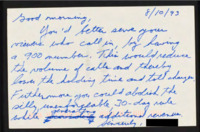 8/10/93
Good morning,
You'd better serve your
viewers who call in by having
a 900 number. This would reduce
the volume of calls and thereby
lower the holding time and toll charges.
Furthermore you could abolish the
silly unenforceable 30-day rule
while generating additional revenue
Sincerely,